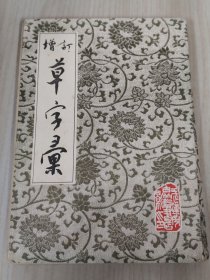 增訂
草字彙